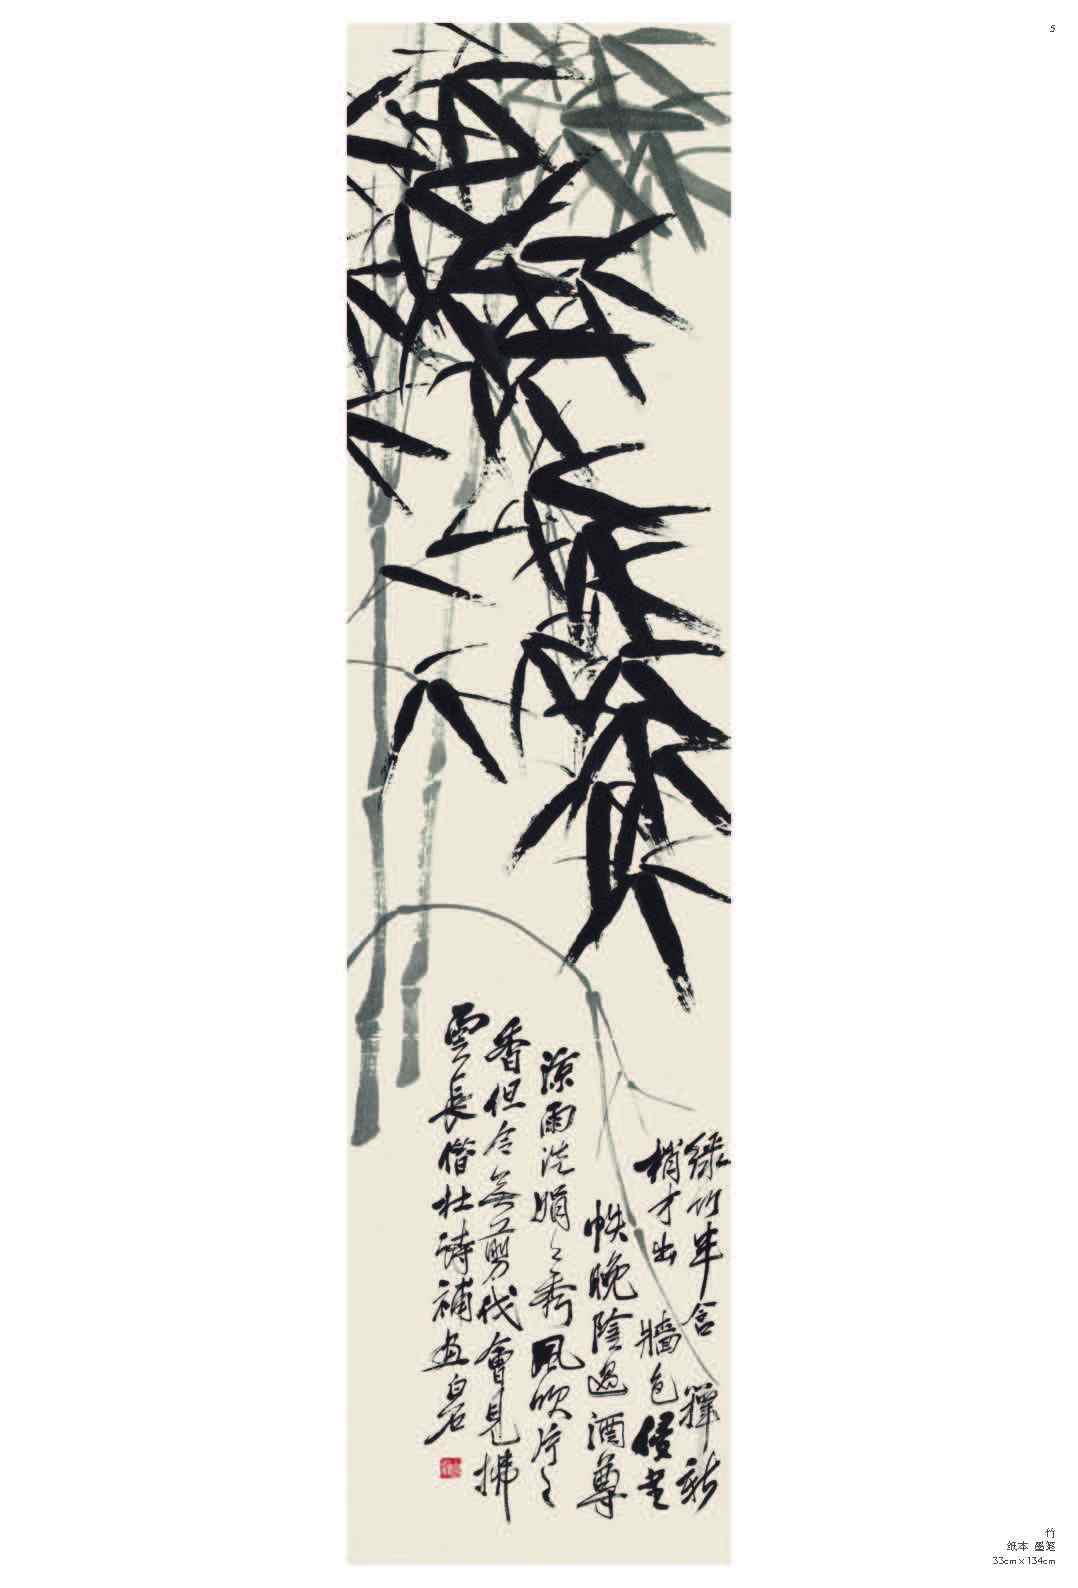 5
綠竹半含籜新
梢才出牆色侵書
帙晚陰過酒尊
涼雨洗娟〻秀風吹片〻
香但令無剪伐會見拂
雲長借杜詩補画
竹
纸本 墨笔
33cm x 134cm